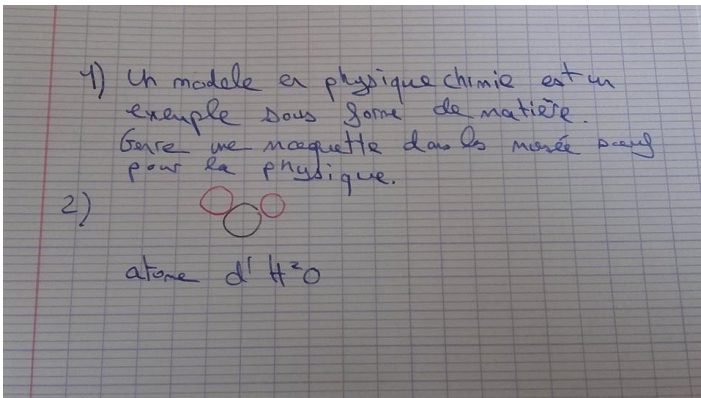 1) Un modele en physique chimie est un
exemple sous forme de matière.
Genre une maquette dans les musée sauf
pour la physique.
2)
atome d' H²O